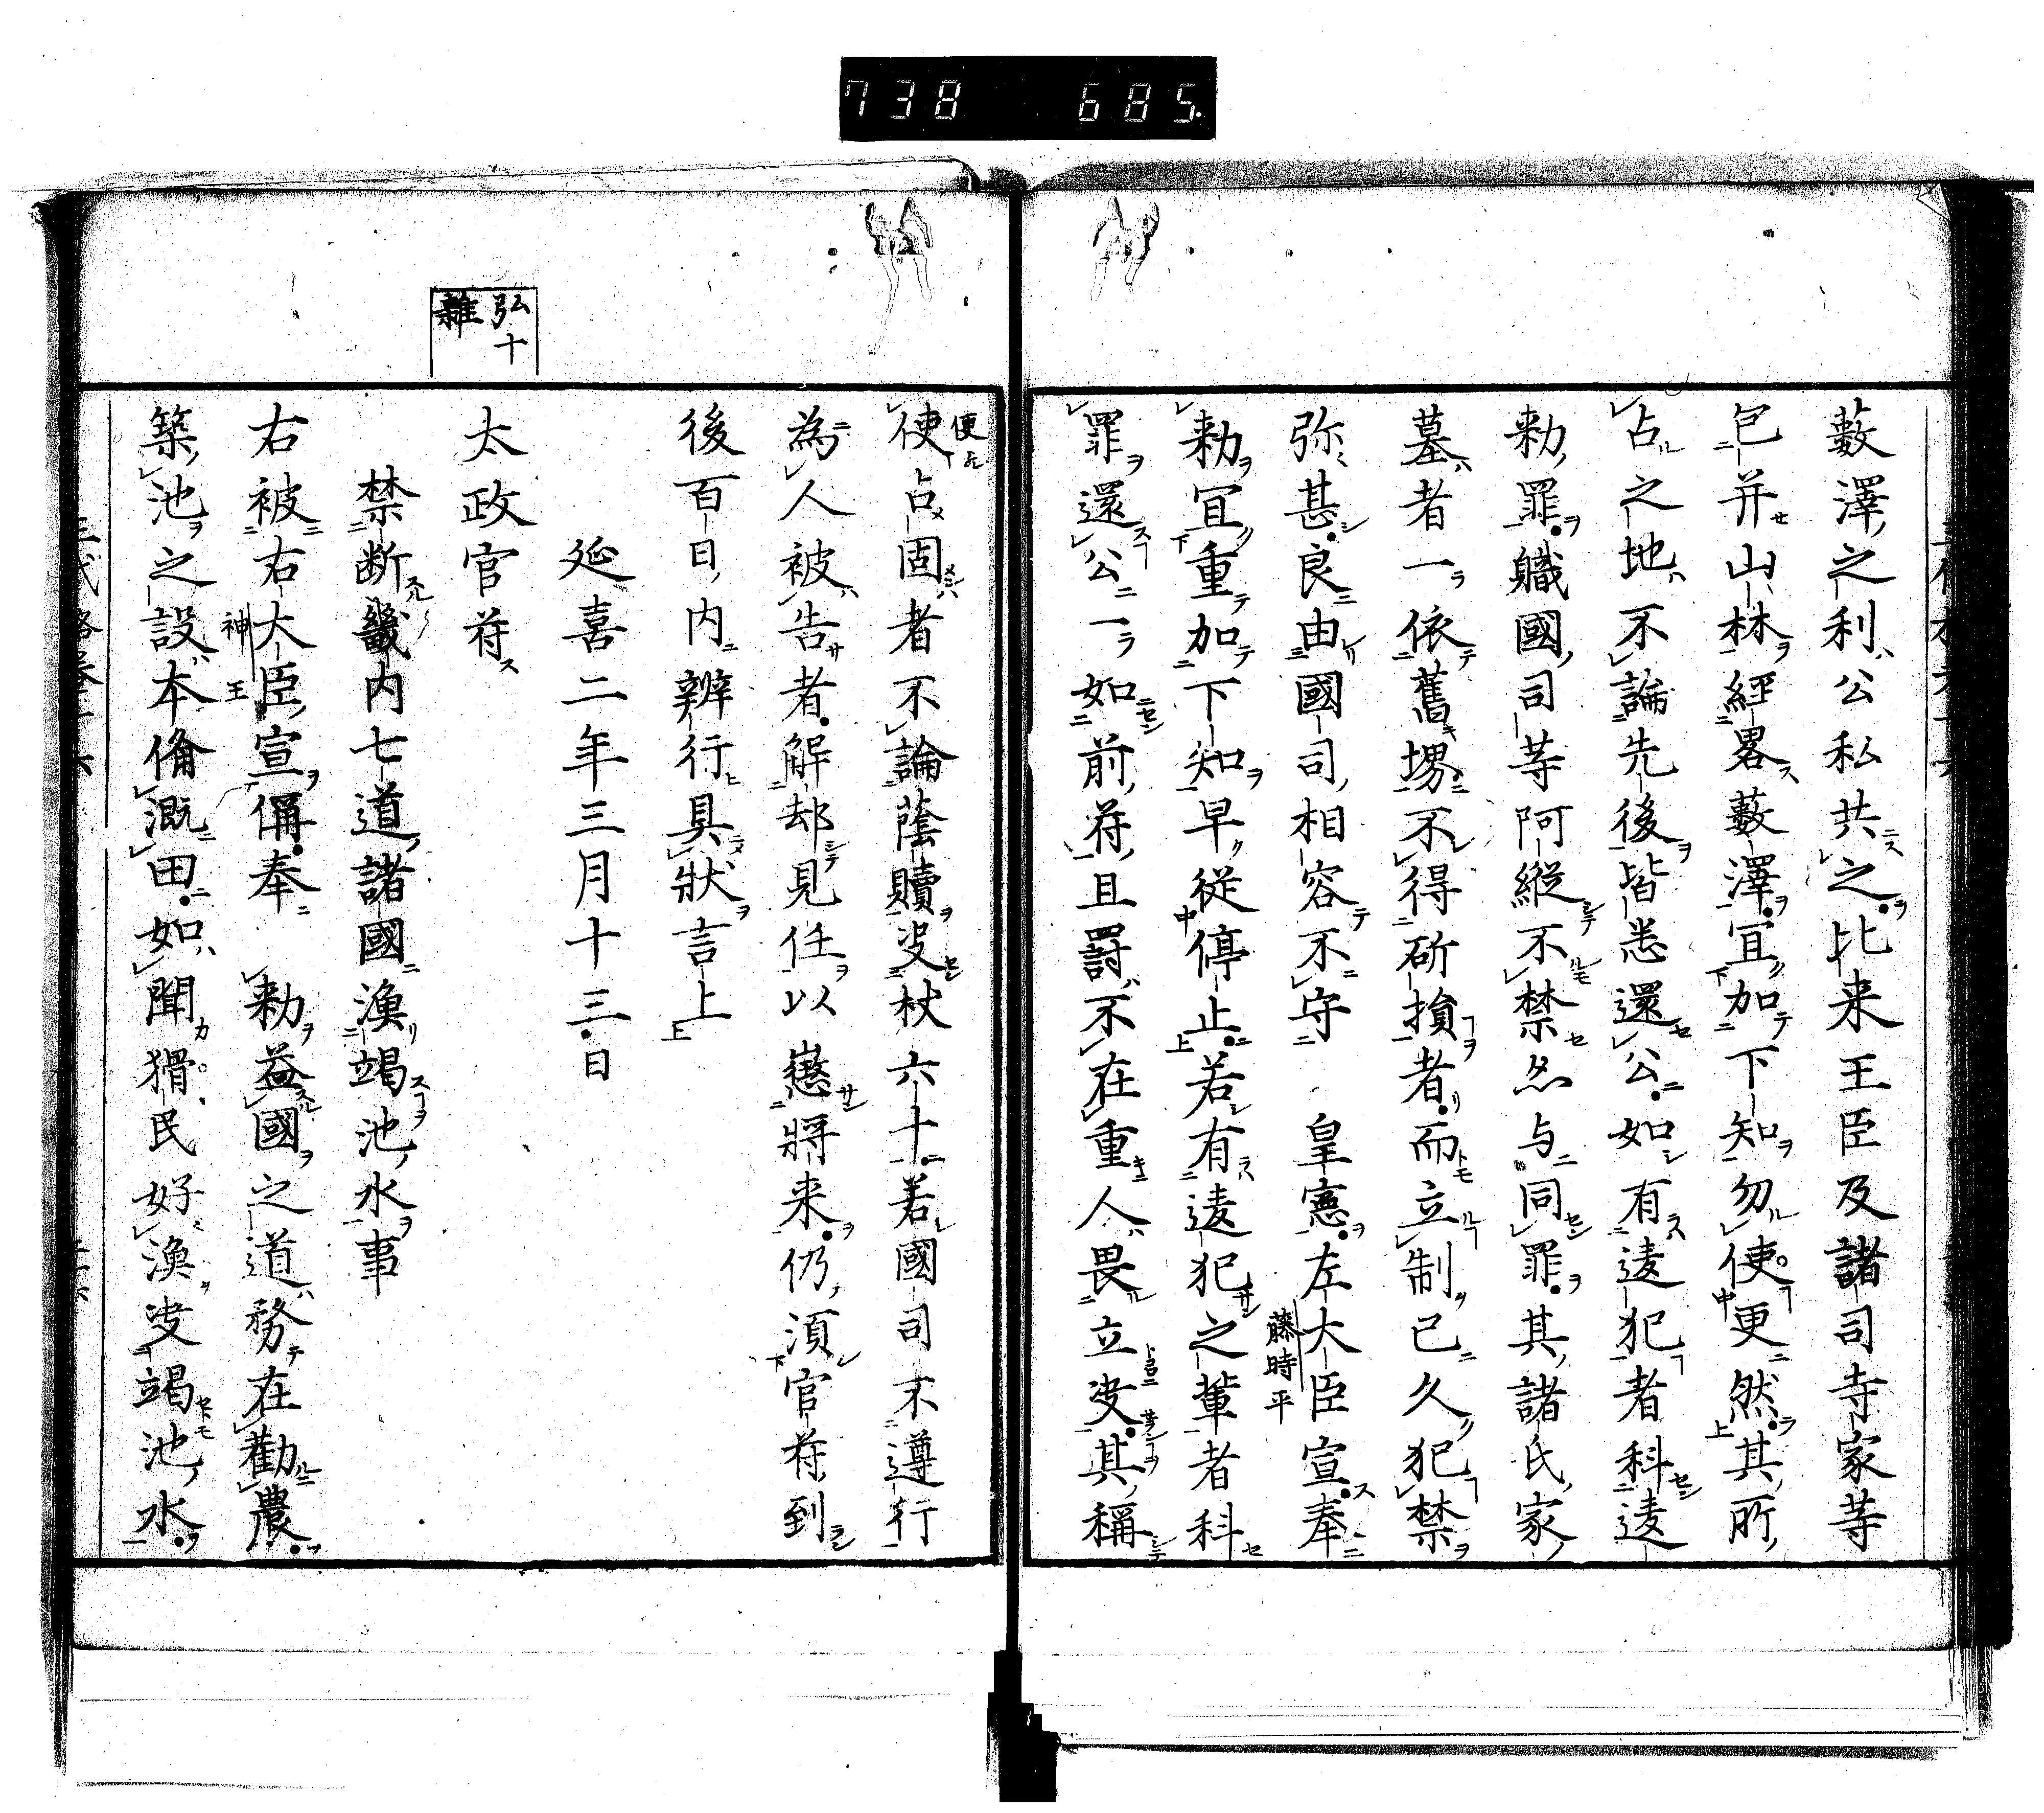 738 685
藪澤之利公私共之比来王臣及諸司寺家等
包并山林經畧藪澤宜加下知勿使更然其所
占之地不論先後皆悉還公如有違犯者科違
勅罪職國司等阿縦不禁亦与同罪其諸氏家
墓者一依舊堺不得斫損者而立制已久犯禁
弥甚良由國司相容不守 皇憲左大臣宣奉
藤時平
勅宜重加下知早従停止若有違犯之輩者科
罪還公一如前符且罸不在重人畏立法其稱
使占固者不論蔭贖决杖六十若國司不遵行
便
為人被告者解却見任以懲將来仍須官符到
後百日内辨行具狀言上
延喜二年三月十三日
弘十
雜
太政官符
禁断畿内七道諸國漁竭池水事
右被右大臣宣偁奉 勅益國之道務在勸農
神王
築池之設本偹漑田如聞猾民好漁决竭池水